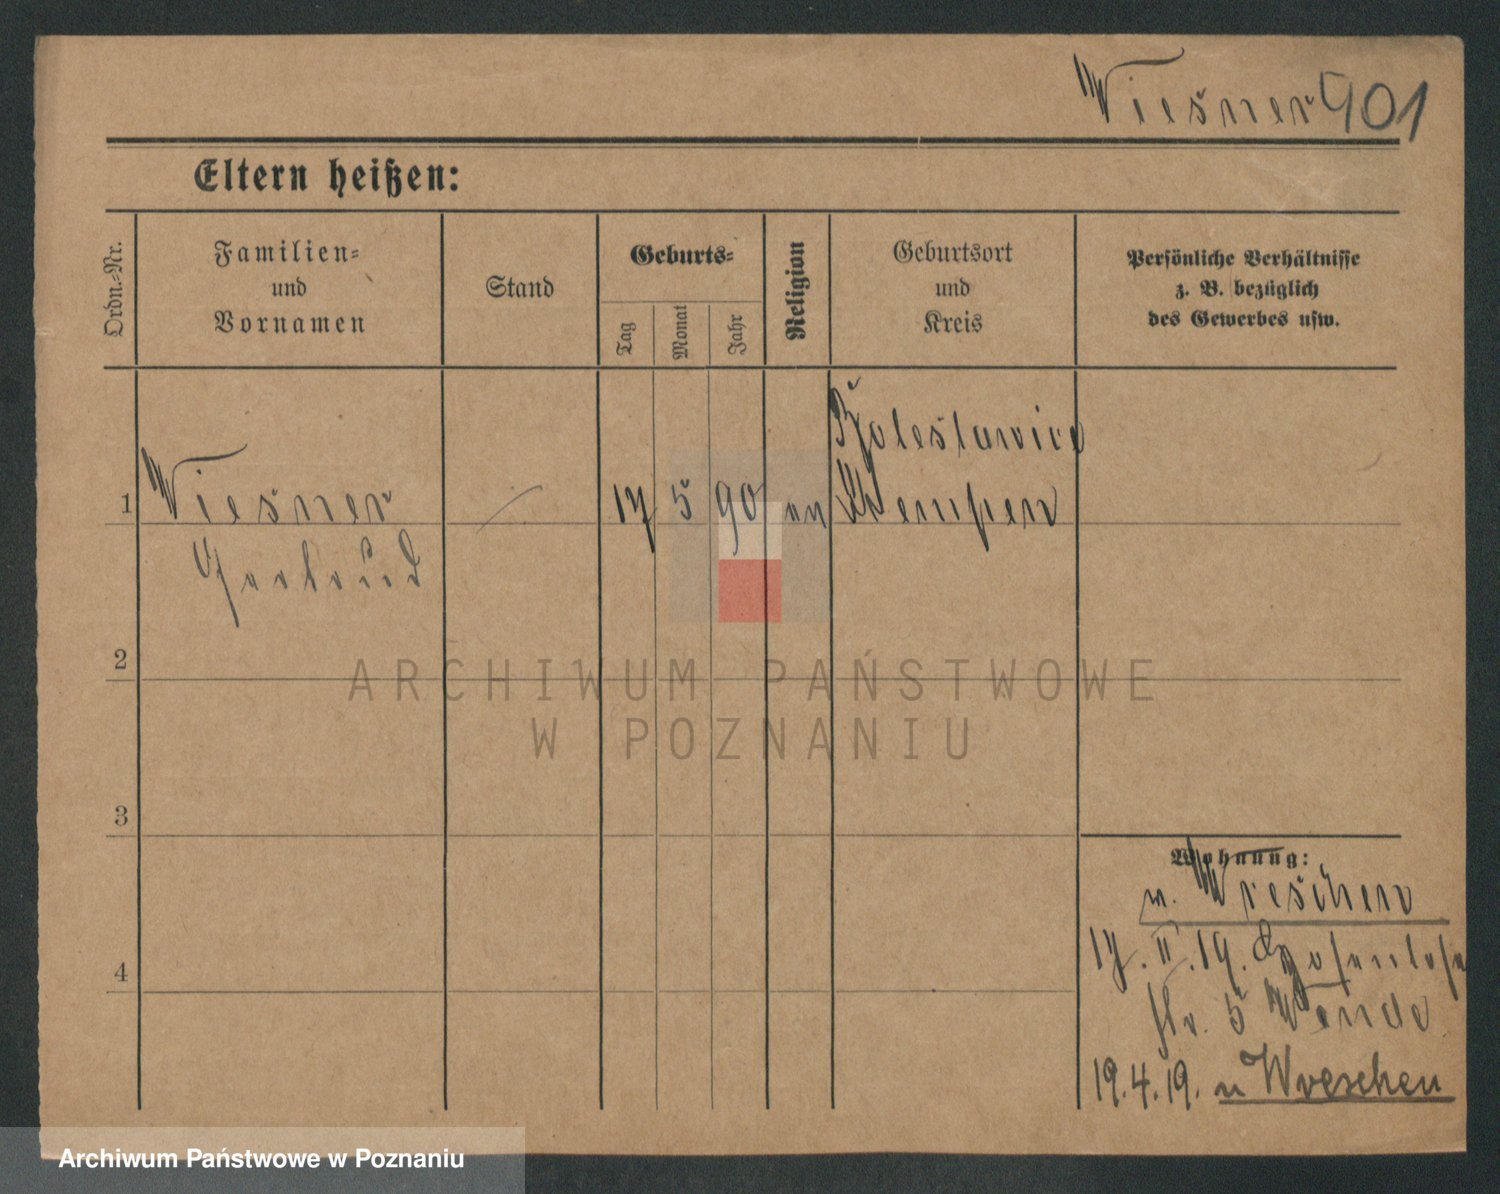 Wiesner 901
Eltern heißen:
Ordn.-Nr.
Familien-
und
Vornamen
Stand
Geburts-
Tag
Monat
Jahr
Religion
Geburtsort
und
Kreis
Persönliche Verhältnisse
z. B. bezüglich
des Gewerbes usw.
1
Wiesner
Gertrud
17 5 90
Boleslawice
Kempen
2
3
4
Wohnung:
n. Wreschen
17. II. 19.
str. 5 Wende
19. 4. 19. n Wreschen
ARCHIWUM PAŃSTWOWE
W POZNANIU
Archiwum Państwowe w Poznaniu